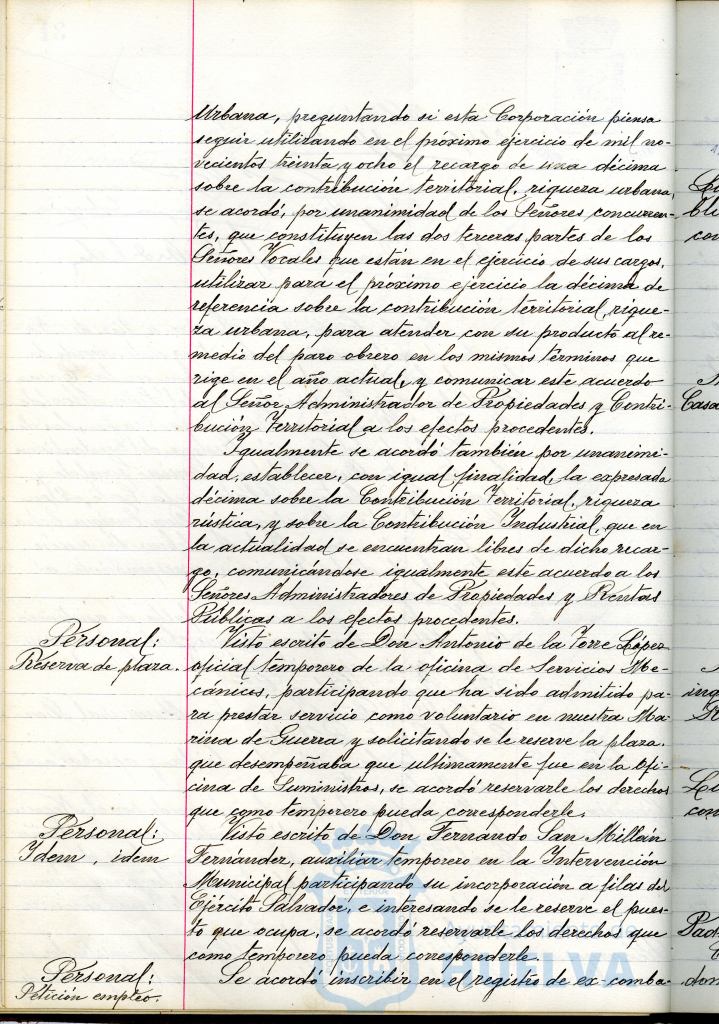 Urbana, preguntando si esta Corporación piensa
seguir utilizando en el próximo ejercicio de mil no-
vecientos treinta y ocho el recargo de una décima
sobre la contribución territorial, riqueza urbana,
se acordó, por unanimidad de los Señores concurren-
tes, que constituyen las dos terceras partes de los
Señores Vocales que están en el ejercicio de sus cargos,
utilizar para el próximo ejercicio la décima de
referencia sobre la contribución territorial, rique-
za urbana, para atender con su producto al re-
medio del paro obrero en los mismos términos que
rige en el año actual, y comunicar este acuerdo
al Señor Administrador de Propiedades y Contri-
bución Territorial a los efectos procedentes.
Igualmente se acordó también por unanimi-
dad, establecer, con igual finalidad, la expresada
décima sobre la Contribución Territorial, riqueza
rústica, y sobre la Contribución Industrial, que en
la actualidad se encuentran libres de dicho recar-
go, comunicándose igualmente este acuerdo a los
Señores Administradores de Propiedades y Rentas
Públicas a los efectos procedentes.
Personal:
Reserva de plaza.
Visto escrito de Don Antonio de la Torre López
oficial temporero de la oficina de Servicios Me-
cánicos, participando que ha sido admitido pa-
ra prestar servicio como voluntario en nuestra Ma-
rina de Guerra y solicitando se le reserve la plaza
que desempeñaba que ultimamente fue en la Ofi-
cina de Suministros, se acordó reservarle los derechos
que como temporero pueda corresponderle.
Personal:
Idem, idem
Visto escrito de Don Fernando San Millán
Fernandez, auxiliar temporero en la Intervención
Municipal participando su incorporación a filas del
Ejército Salvador, e interesando se le reserve el pues-
to que ocupa, se acordó reservarle los derechos que
como temporero pueda corresponderle.
Personal:
Petición empleo.
Se acordó inscribir en el registro de ex-comba-
HUELVA